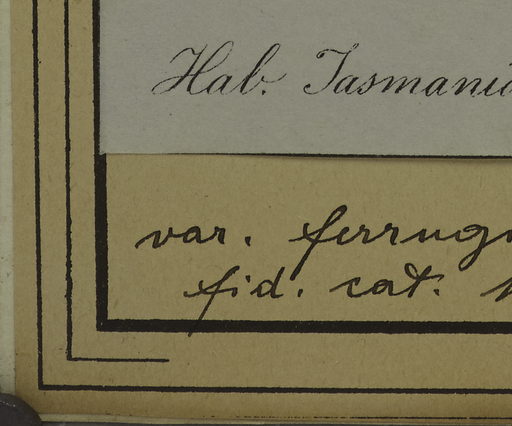 Hab. Tasmani
var. ferrug
fid. cat.